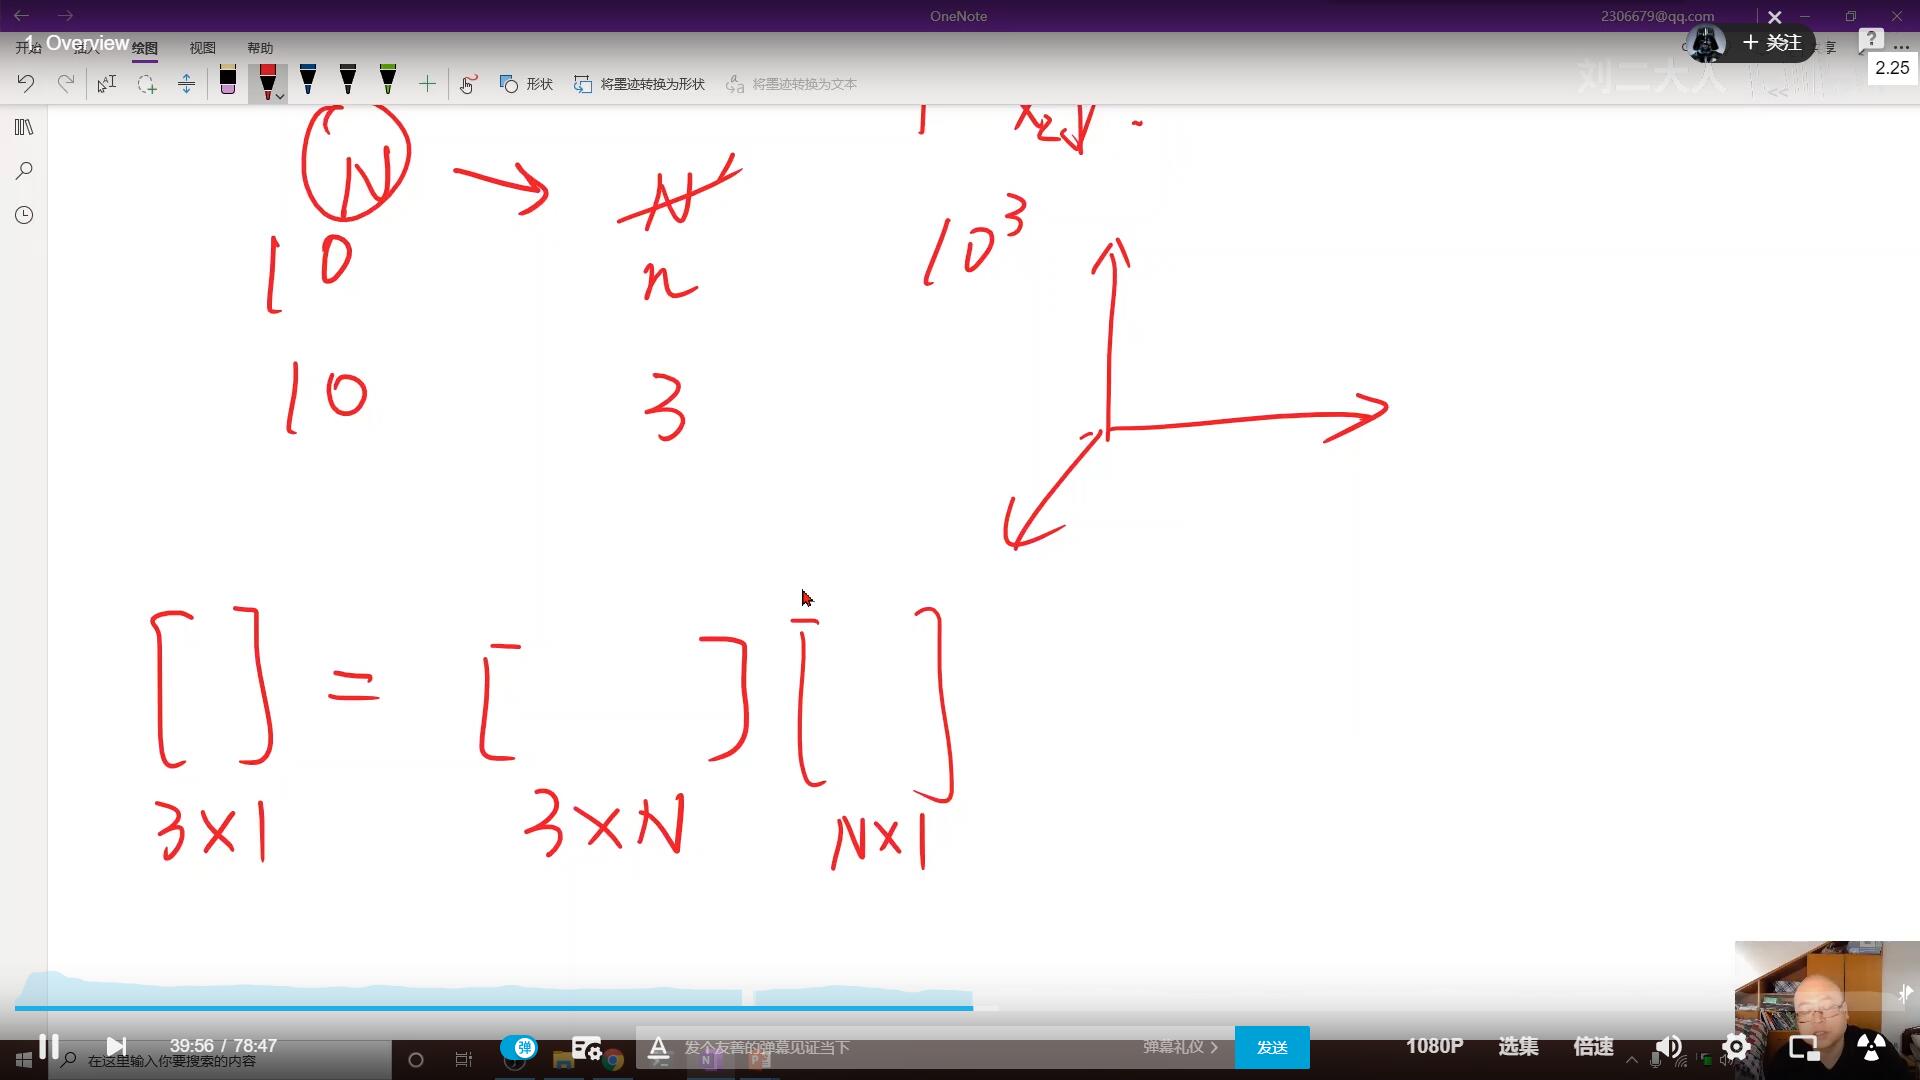 OneNote
2306679@qq.com
1. Overview
开始 插入 绘图 视图 帮助
+ 关注
2.25
形状 将墨迹转换为形状 将墨迹转换为文本
刘二大人
<<
N → N
x2
10 n 10³
10 3
[ ] = [ ] [ ]
3×1 3×N N×1
39:56 / 78:47
弹
发个友善的弹幕见证当下
弹幕礼仪 >
发送
1080P 选集 倍速
在这里输入你要搜索的内容